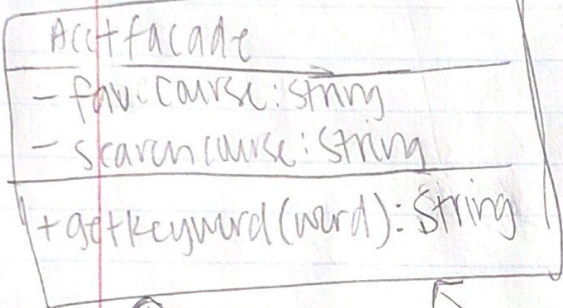 Acctfacade
- fav.course: string
- searchcourse: String
+ getkeyword(word): String